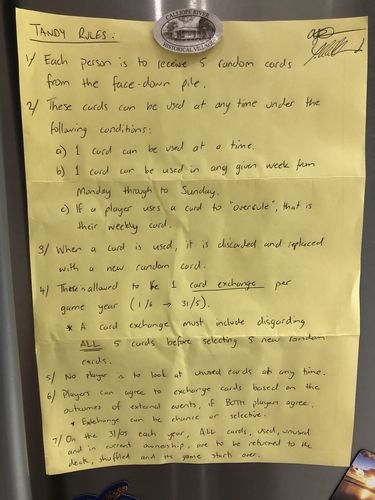 CALLIOPE RIVER
HISTORICAL VILLAGE
TANDY RULES:
1/ Each person is to receive 5 random cards
from the face-down pile.
2/ These cards can be used at any time under the
following conditions:
a) 1 card can be used at a time.
b) 1 card can be used in any given week from
Monday through to Sunday.
c) If a player uses a card to "overrule", that is
their weekly card.
3/ When a card is used, it is discarded and replaced
with a new random card.
4/ There is allowed to be 1 card exchange per
game year (1/6 → 31/5).
* A card exchange must include disgarding
ALL 5 cards before selecting 5 new random
cards.
5/ No player is to look at unused cards at any time.
6/ Players can agree to exchange cards based on the
outcomes of external events, if BOTH players agree.
* Exchange can be chance or selective.
7/ On the 31/05 each year, ALL cards, used, unused
and in current ownership, are to be returned to the
deck, shuffled and the game starts over.